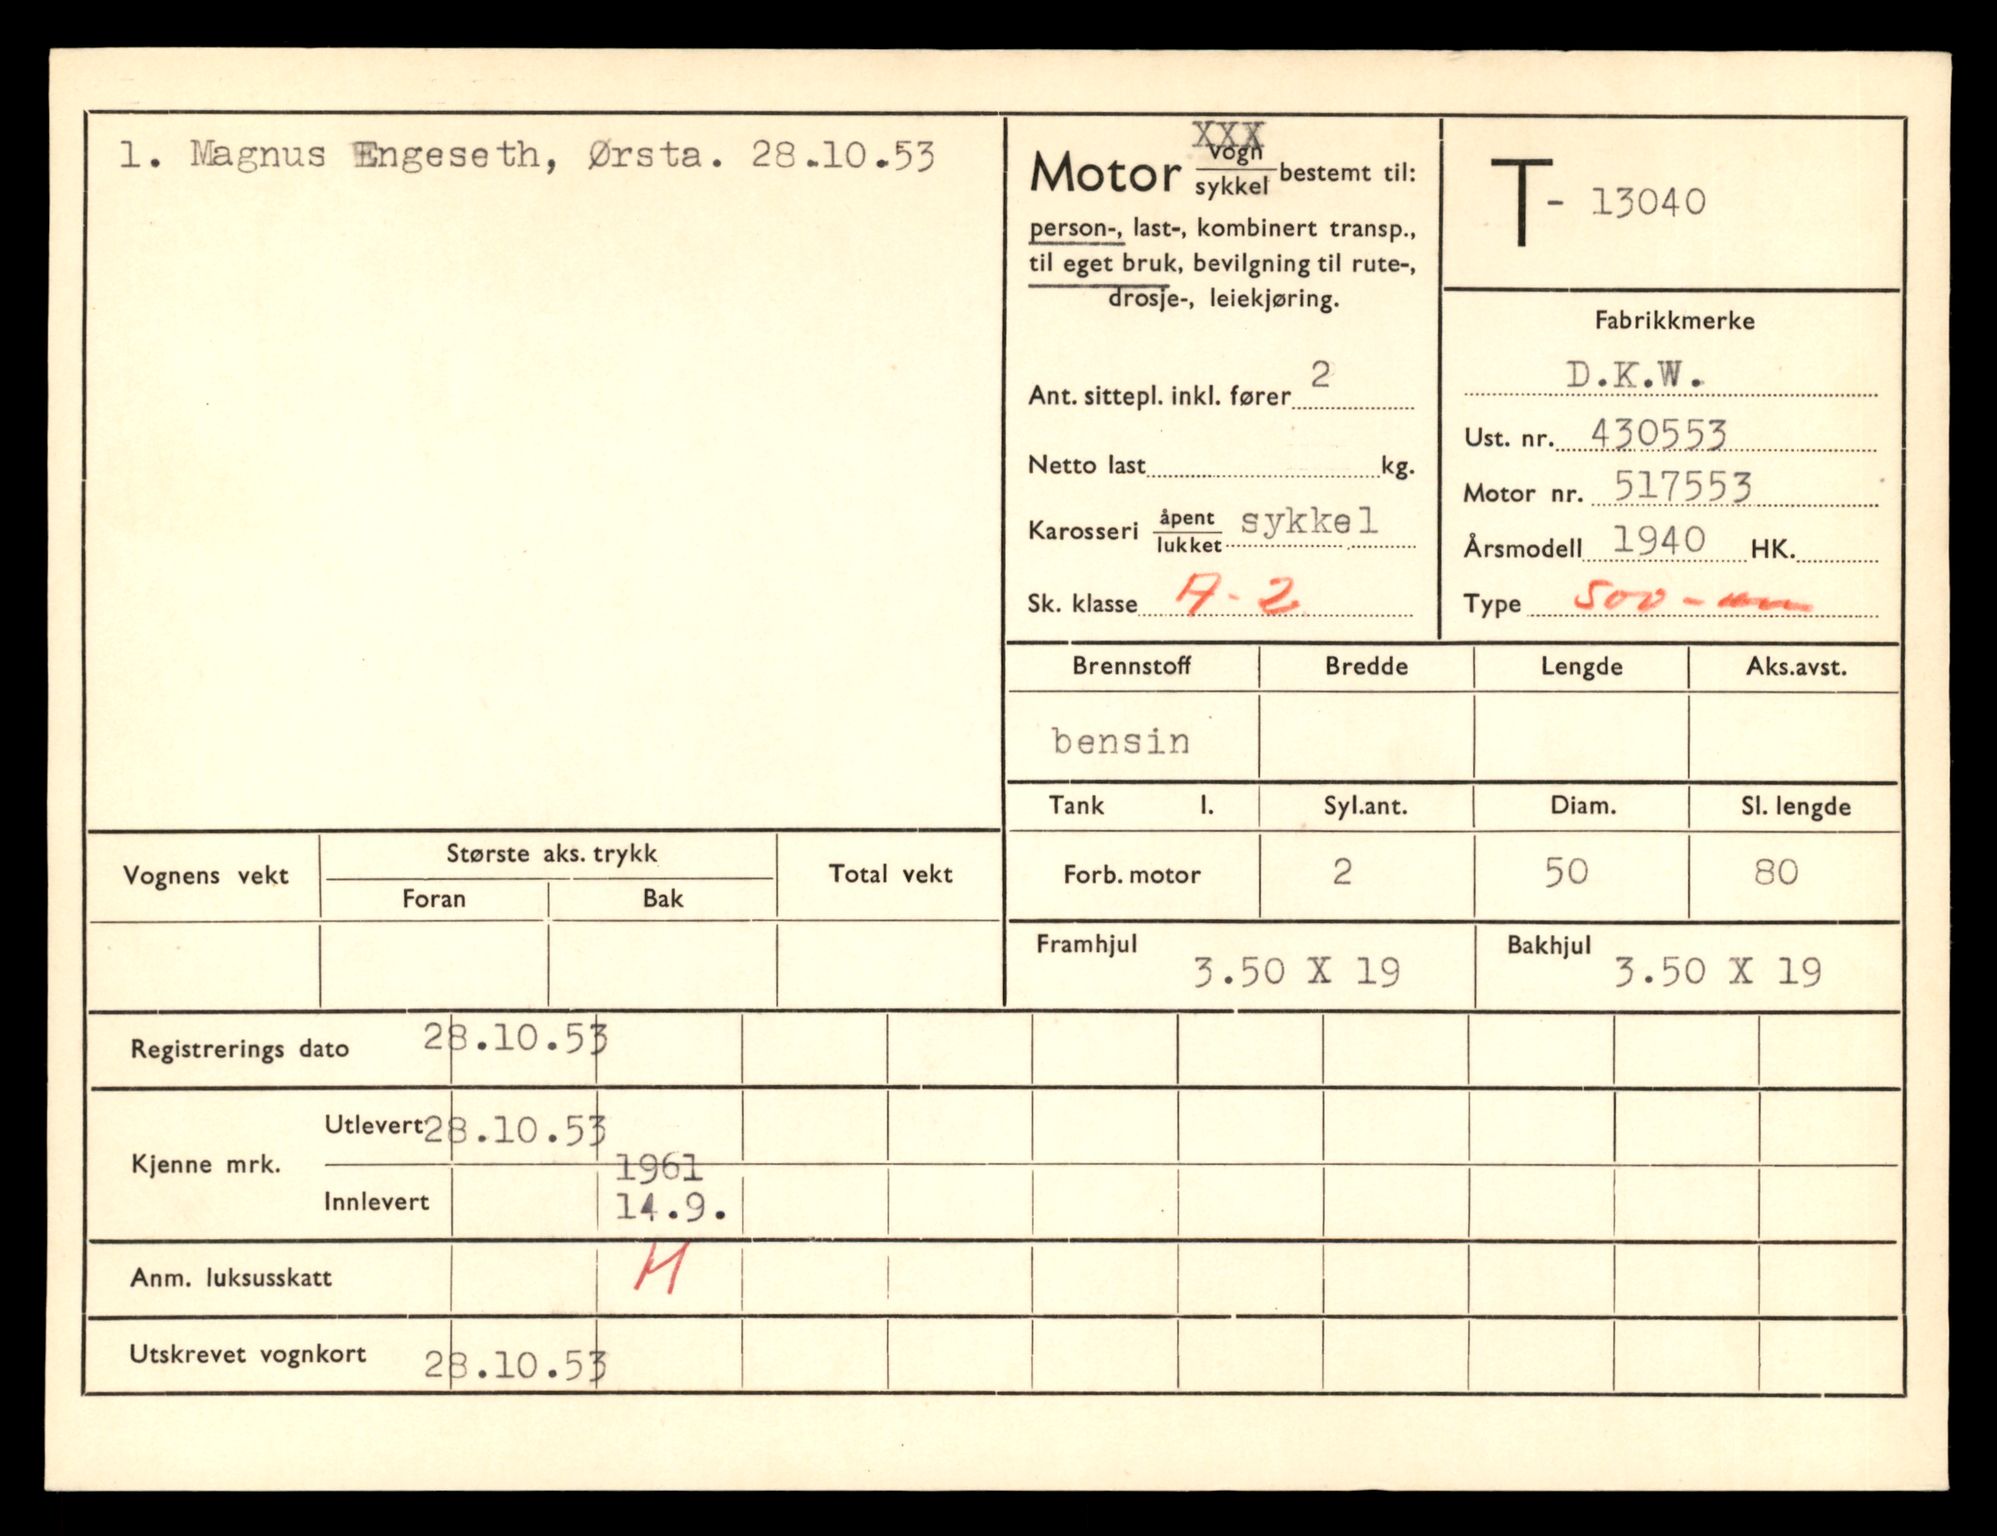 1. Magnus Engeseth, Ørsta. 28.10.53
XXX
Motor vogn/sykkel bestemt til:
person-, last-, kombinert transp.,
til eget bruk, bevilgning til rute-,
drosje-, leiekjøring.
Ant. sittepl. inkl. fører 2
Netto last kg.
Karosseri åpent/lukket sykkel
Sk. klasse A-2
T- 13040
Fabrikkmerke
D.K.W.
Ust. nr. 430553
Motor nr. 517553
Årsmodell 1940 HK.
Type 500-
Brennstoff Bredde Lengde Aks.avst.
bensin
Tank l. Syl.ant. Diam. Sl. lengde
Forb. motor 2 50 80
Framhjul 3.50 X 19 Bakhjul 3.50 X 19
Vognens vekt Største aks. trykk Total vekt
Foran Bak
Registrerings dato 28.10.53
Kjenne mrk. Utlevert 28.10.53
Innlevert 1961
14.9.
Anm. luksusskatt H
Utskrevet vognkort 28.10.53